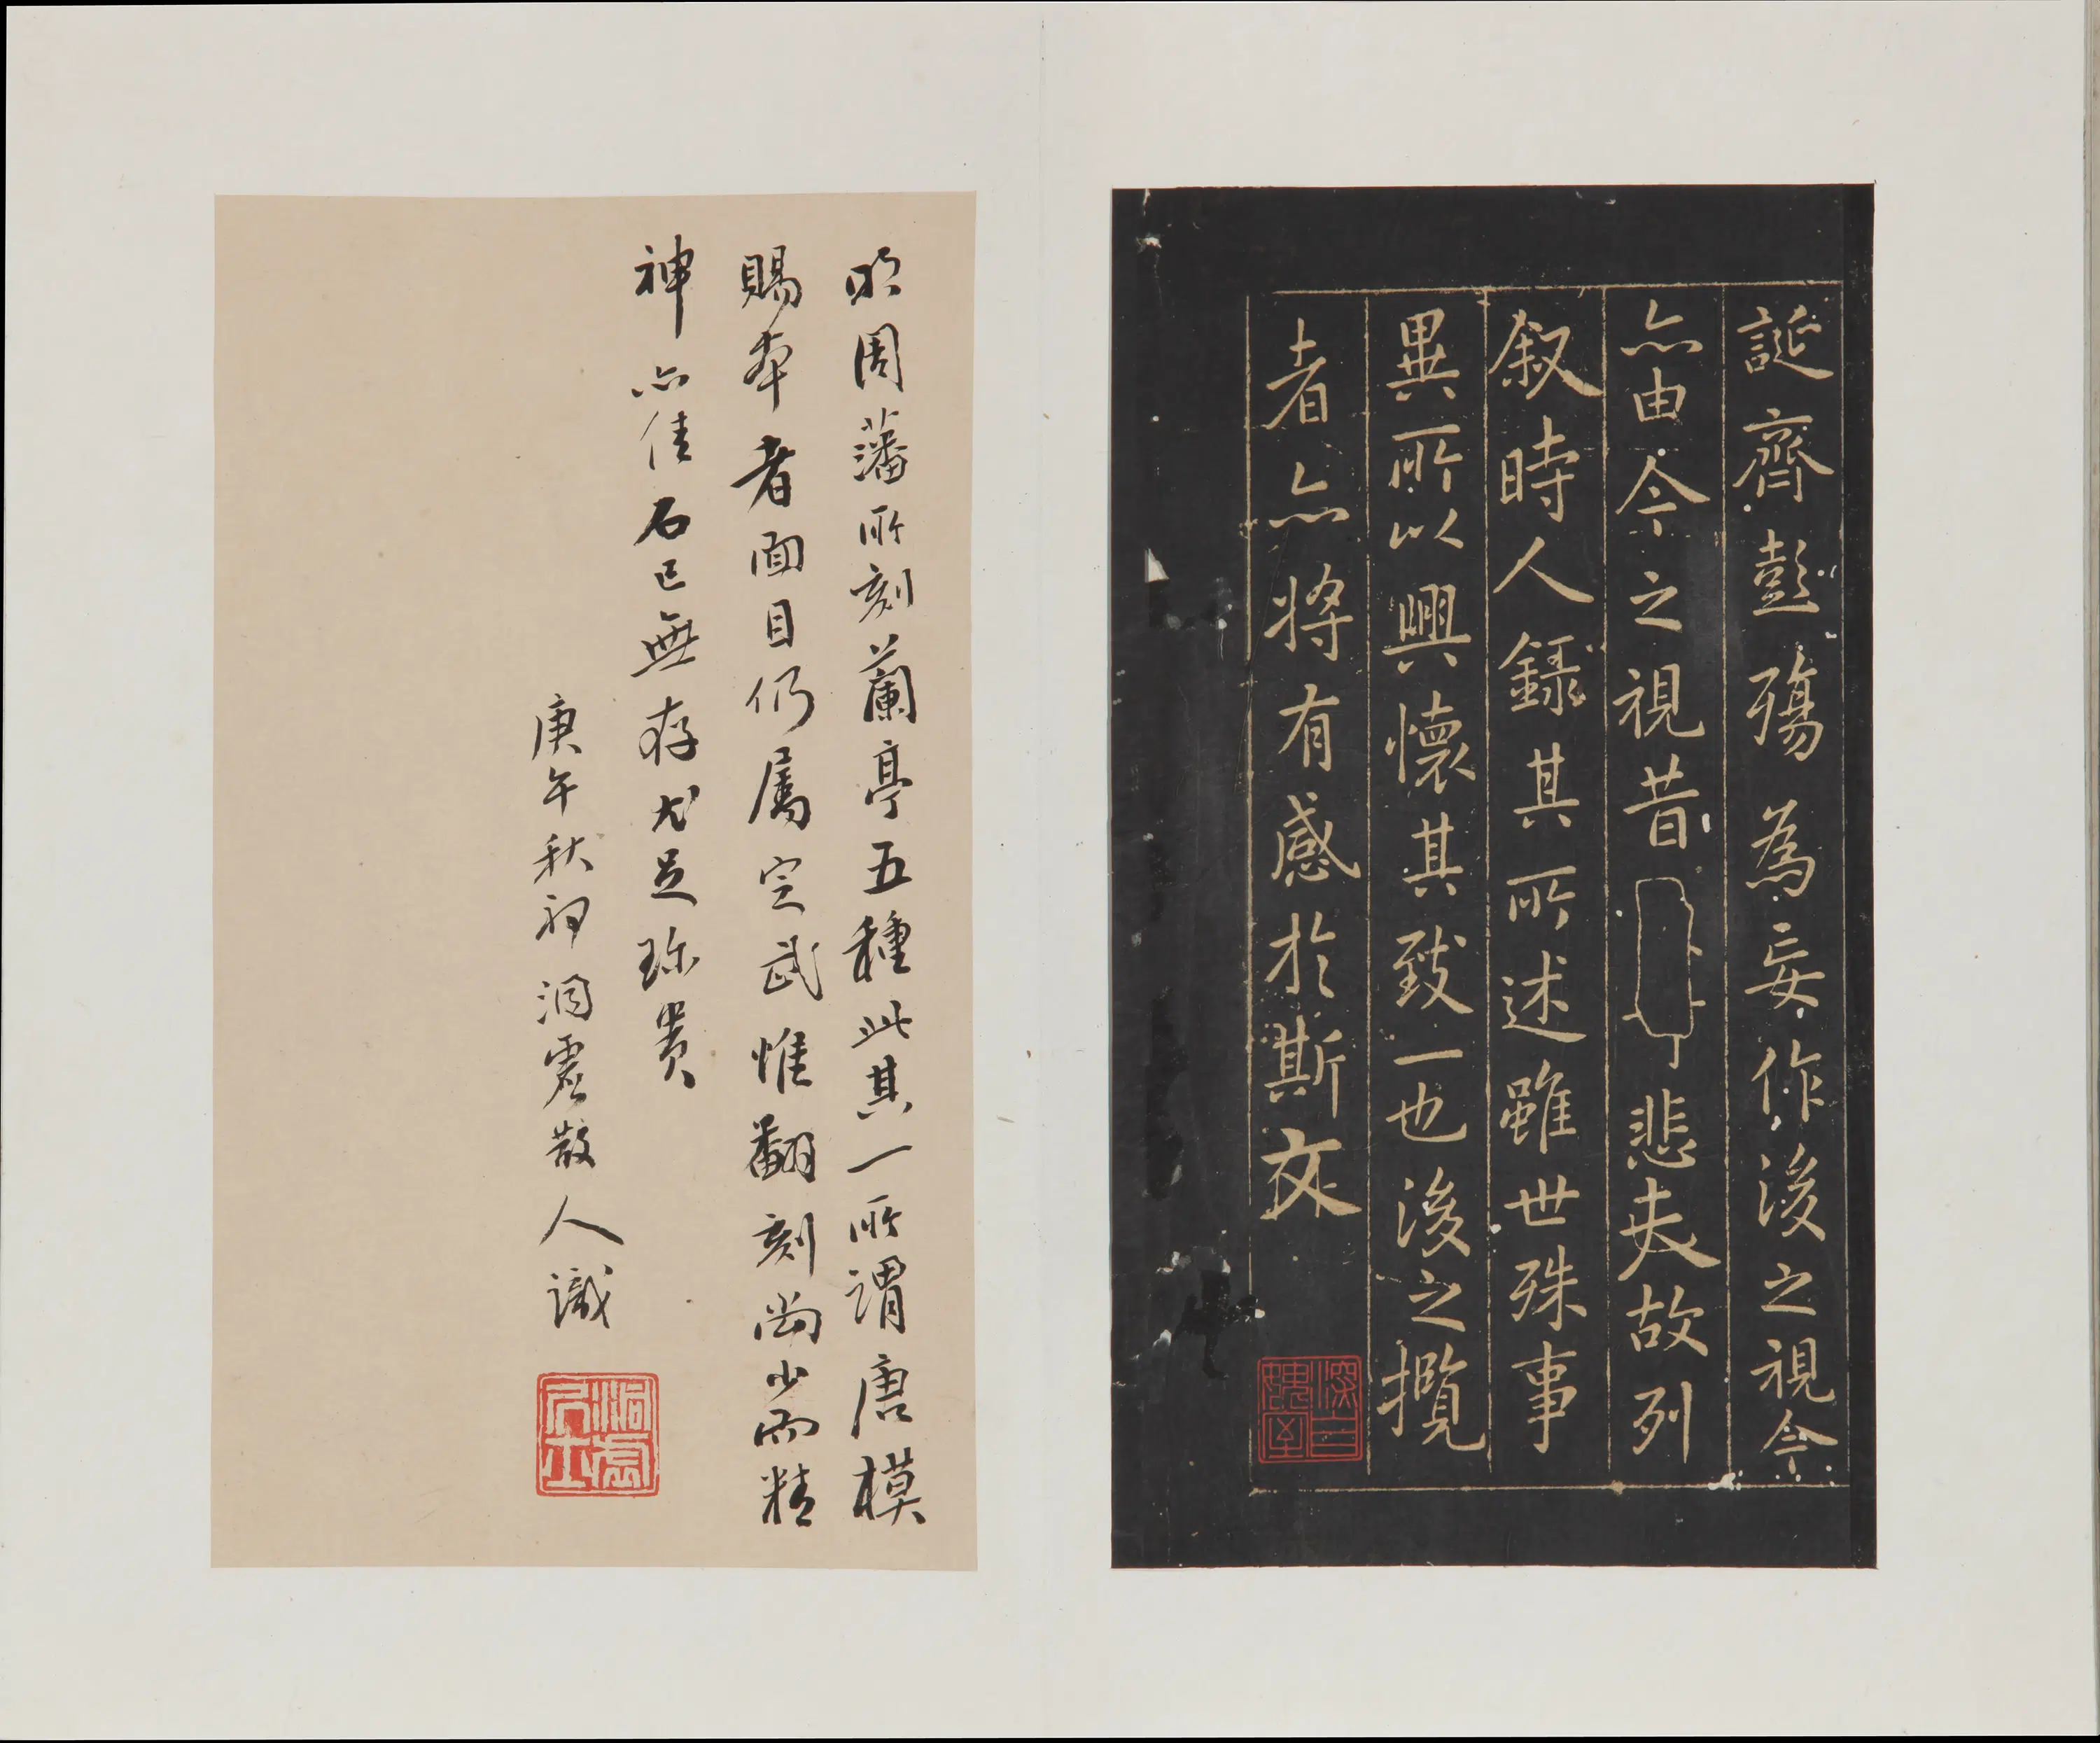 誕齊彭殤為妄作後之視今
亦由今之視昔悲夫故列
叙時人録其所述雖世殊事
異所以興懷其致一也後之攬
者亦將有感於斯文
明周藩所刻蘭亭五種此其一所謂唐模
賜本者面目仍屬定武惟翻刻尚少而精
神亦佳石已無存尤足珍貴
庚午秋初洞虛散人識
洞虛居士